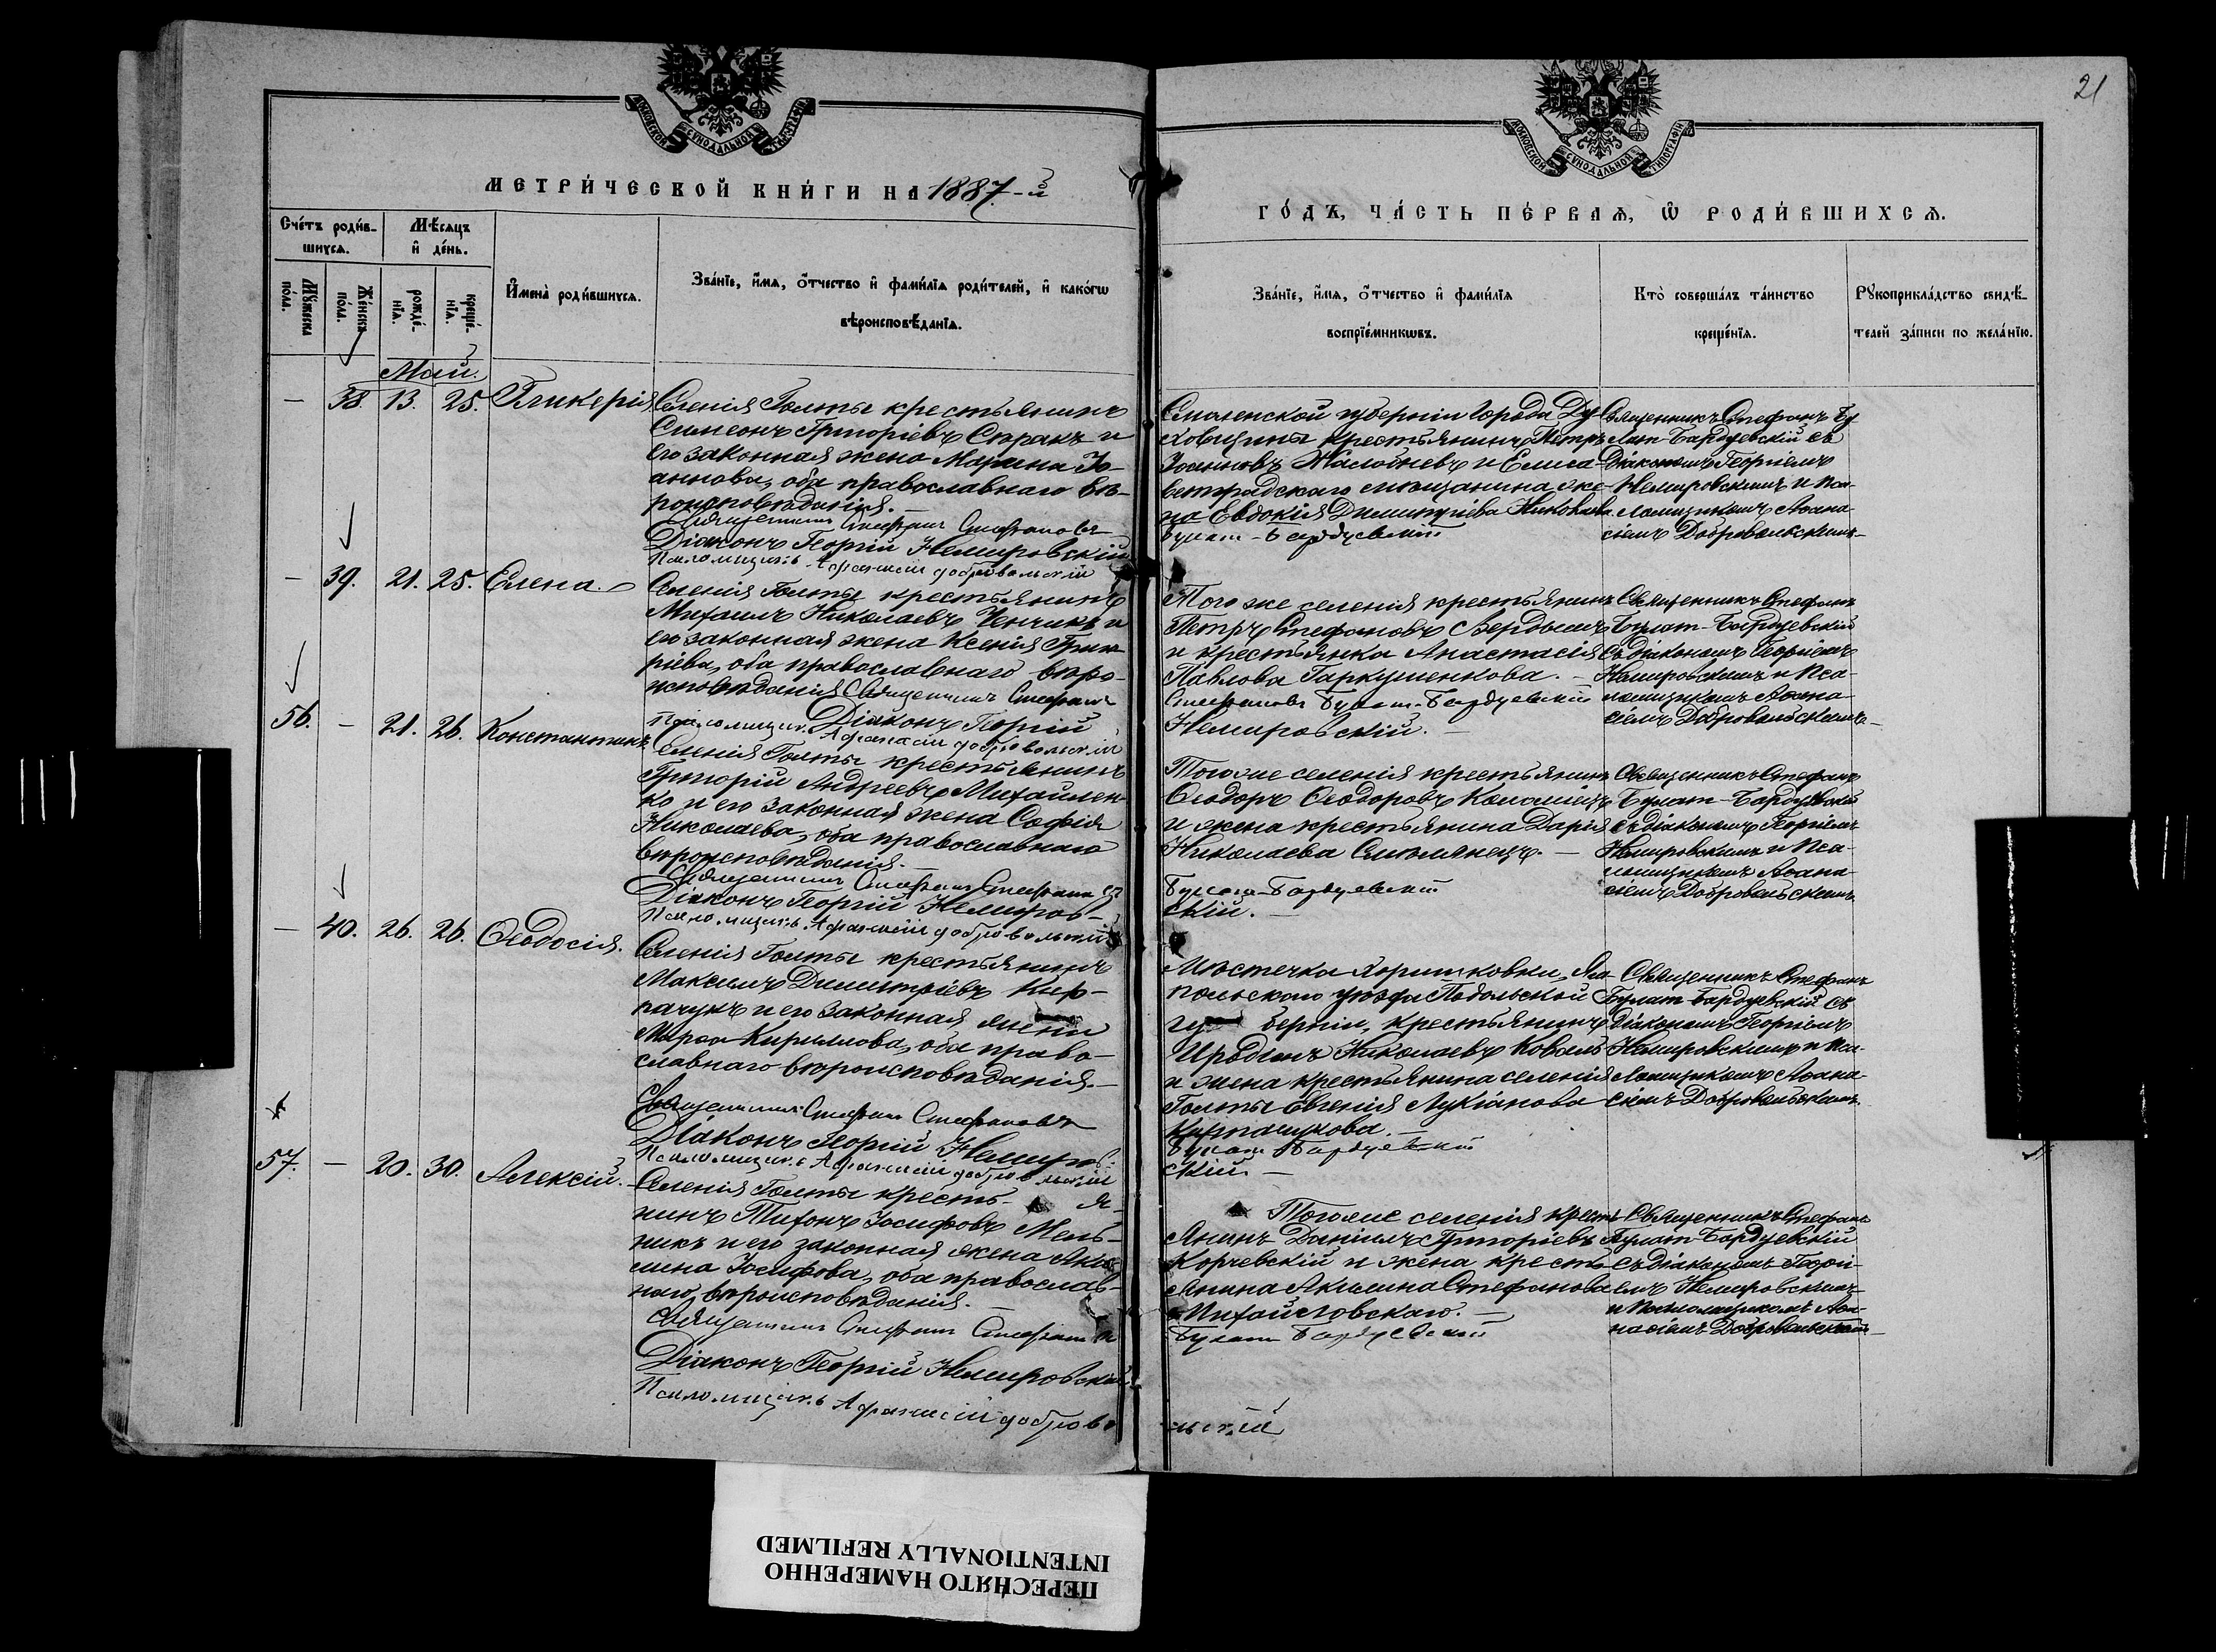 21
МОСКОВСКОЙ СѴНОДАЛЬНОЙ ТИПОГРАФІИ
МОСКОВСКОЙ СѴНОДАЛЬНОЙ ТИПОГРАФІИ
МЕТРИ́ЧЕСКОЙ КНИ́ГИ НА 1887-й
ГО́ДЪ, ЧА́СТЬ ПЕ́РВАѦ, Ѡ҆ РОДИ́ВШИХСѦ.
Сче́тъ роди́в-
шихсѧ.
Мѣ́сѧцъ
и҆ де́нь.
Мꙋ́жеска
по́ла.
Же́нска
по́ла.
рожде́-
нїѧ.
креще́-
нїѧ.
И҆мена̀ роди́вшихсѧ.
Зва́нїе, и҆́мѧ, ѻ҆́тчество и҆ фами́лїѧ роди́телей, и҆ како́гѡ
вѣроисповѣ́данїѧ.
Зва́нїе, и҆́мѧ, ѻ҆́тчество и҆ фами́лїѧ
воспрїе́мникѡвъ.
Кто̀ соверша́лъ та́инство
креще́нїѧ.
Рꙋкоприкла́дство свидѣ́-
телей за́писи по жела́нїю.
Май.
— 38. 13. 25. Гликерія
Селенія Голты крестьянинъ
Симеонъ Григоріевъ Стракъ и
его законная жена Марина Іо-
аннова, оба православнаго вѣ-
роисповѣданія.—
Священникъ Стефанъ Стефановъ
Діаконъ Георгій Немировскій
Псаломщикъ Афанасій Добровольскій
Смоленской губерніи города Ду-
ховщины крестьянинъ Петръ
Іоанновъ и Елиса-
ветградскаго мѣщанина же-
на Евдокія Димитріева
Булат-Бардуевскій
Священникъ Стефанъ Бу
лат-Бардуевскій съ
Діакономъ Георгіемъ
Немировскимъ и Пса-
ломщикомъ Аѳана-
сіемъ Добровольскимъ—
— 39. 21. 25. Елена.
Селенія Голты крестьянинъ
Михаилъ Николаевъ Ченчикъ и
его законная жена Ксенія Григо-
ріева, оба православнаго вѣро-
исповѣданія Священникъ Стефанъ
Діаконъ Георгій
Псаломщикъ Афанасій Добровольскій
Того же селенія крестьянинъ
Петръ Стефановъ Вердышъ
и крестьянка Анастасія
Павлова Гаркушенкова.—
Стефановъ Булат-Бардуевскій
Немировскій.—
Священникъ Стефанъ
Булат-Бардуевскій
съ діакономъ Георгіемъ
Немировскимъ и Пса-
ломщикомъ Аѳана-
сіемъ Добровольскимъ—
56. — 21. 26. Константинъ
Селенія Голты крестьянинъ
Григорій Андреевъ Михайлен-
ко и его законная жена Софія
Николаева, оба православнаго
вѣроисповѣданія.—
Священникъ Стефанъ Стефановъ
Діаконъ Георгій Немиров-
Псаломщикъ Афанасій Добровольскій
Того же селенія крестьянинъ
Ѳеодоръ Ѳеодоровъ Коломіецъ
и жена крестьянина Дарія
Николаева Смолянецъ.—
Булат-Бардуевскій
скій.—
Священникъ Стефанъ
Булат-Бардуевскій
съ діакономъ Георгіемъ
Немировскимъ и Пса-
ломщикомъ Аѳана-
сіемъ Добровольскимъ.
— 40. 26. 26. Ѳеодосія.
Селенія Голты крестьянинъ
Максимъ Димитріевъ Кир-
пачукъ и его законная жена
Марѳа Кириллова, оба право-
славнаго вѣроисповѣданія.—
Священникъ Стефанъ Стефановъ
Діаконъ Георгій Немиров-
Псаломщикъ Афанасій Добровольскій
Мѣстечка Хорошковки, Ям-
польскаго уѣзда Подольской
гу берніи, крестьянинъ
Иродіонъ Николаевъ Коваль
и жена крестьянина селенія
Голты Евгенія Лукіанова
Кирпачукова.—
Булат Бардуевскій
скій—
Священникъ Стефанъ
Булат-Бардуевскій съ
діакономъ Георгіемъ
Немировскимъ и Пса-
ломщикомъ Аѳана-
сіемъ Добровольскимъ.
57. — 20. 30. Алексій.
Селенія Голты кресть- я-
нинъ Тихонъ Іосифовъ Мель-
никъ и его законная жена Аки-
лина Іосифова, оба православ-
наго вѣроисповѣданія.—
Священникъ Стефанъ Стефановъ
Діаконъ Георгій Немировскій
Псаломщикъ Афанасій Доброво
Того же селенія кресть
янинъ Даніилъ Григоріевъ
Корчевскій и жена кресть-
янина Акилина Стефанова
Михайловскаго.—
Булат Бардуевскій
льскій
Священникъ Стефанъ
Булат-Бардуевскій
съ діакономъ Георгі-
емъ Немировскимъ
и Псаломщикомъ Аѳа-
насіемъ Добровольскимъ—
ПЕРЕСНЯТО НАМЕРЕННО
INTENTIONALLY REFILMED